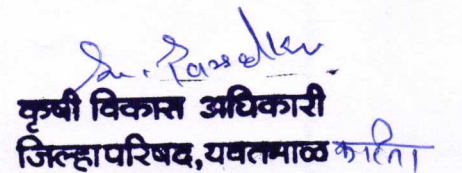 कृषी विकास अधिकारी
जिल्हापरिषद,यवतमाळ करिता